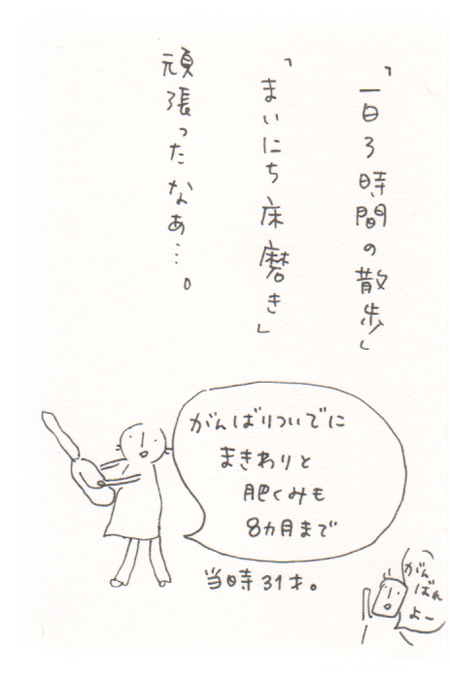 「一日3時間の散歩」
「まいにち床磨き」
頑張ったなあ…。
がんばりついでに
まきわりと
肥くみも
8ヵ月まで
当時31才。
がん
ばれ
よー